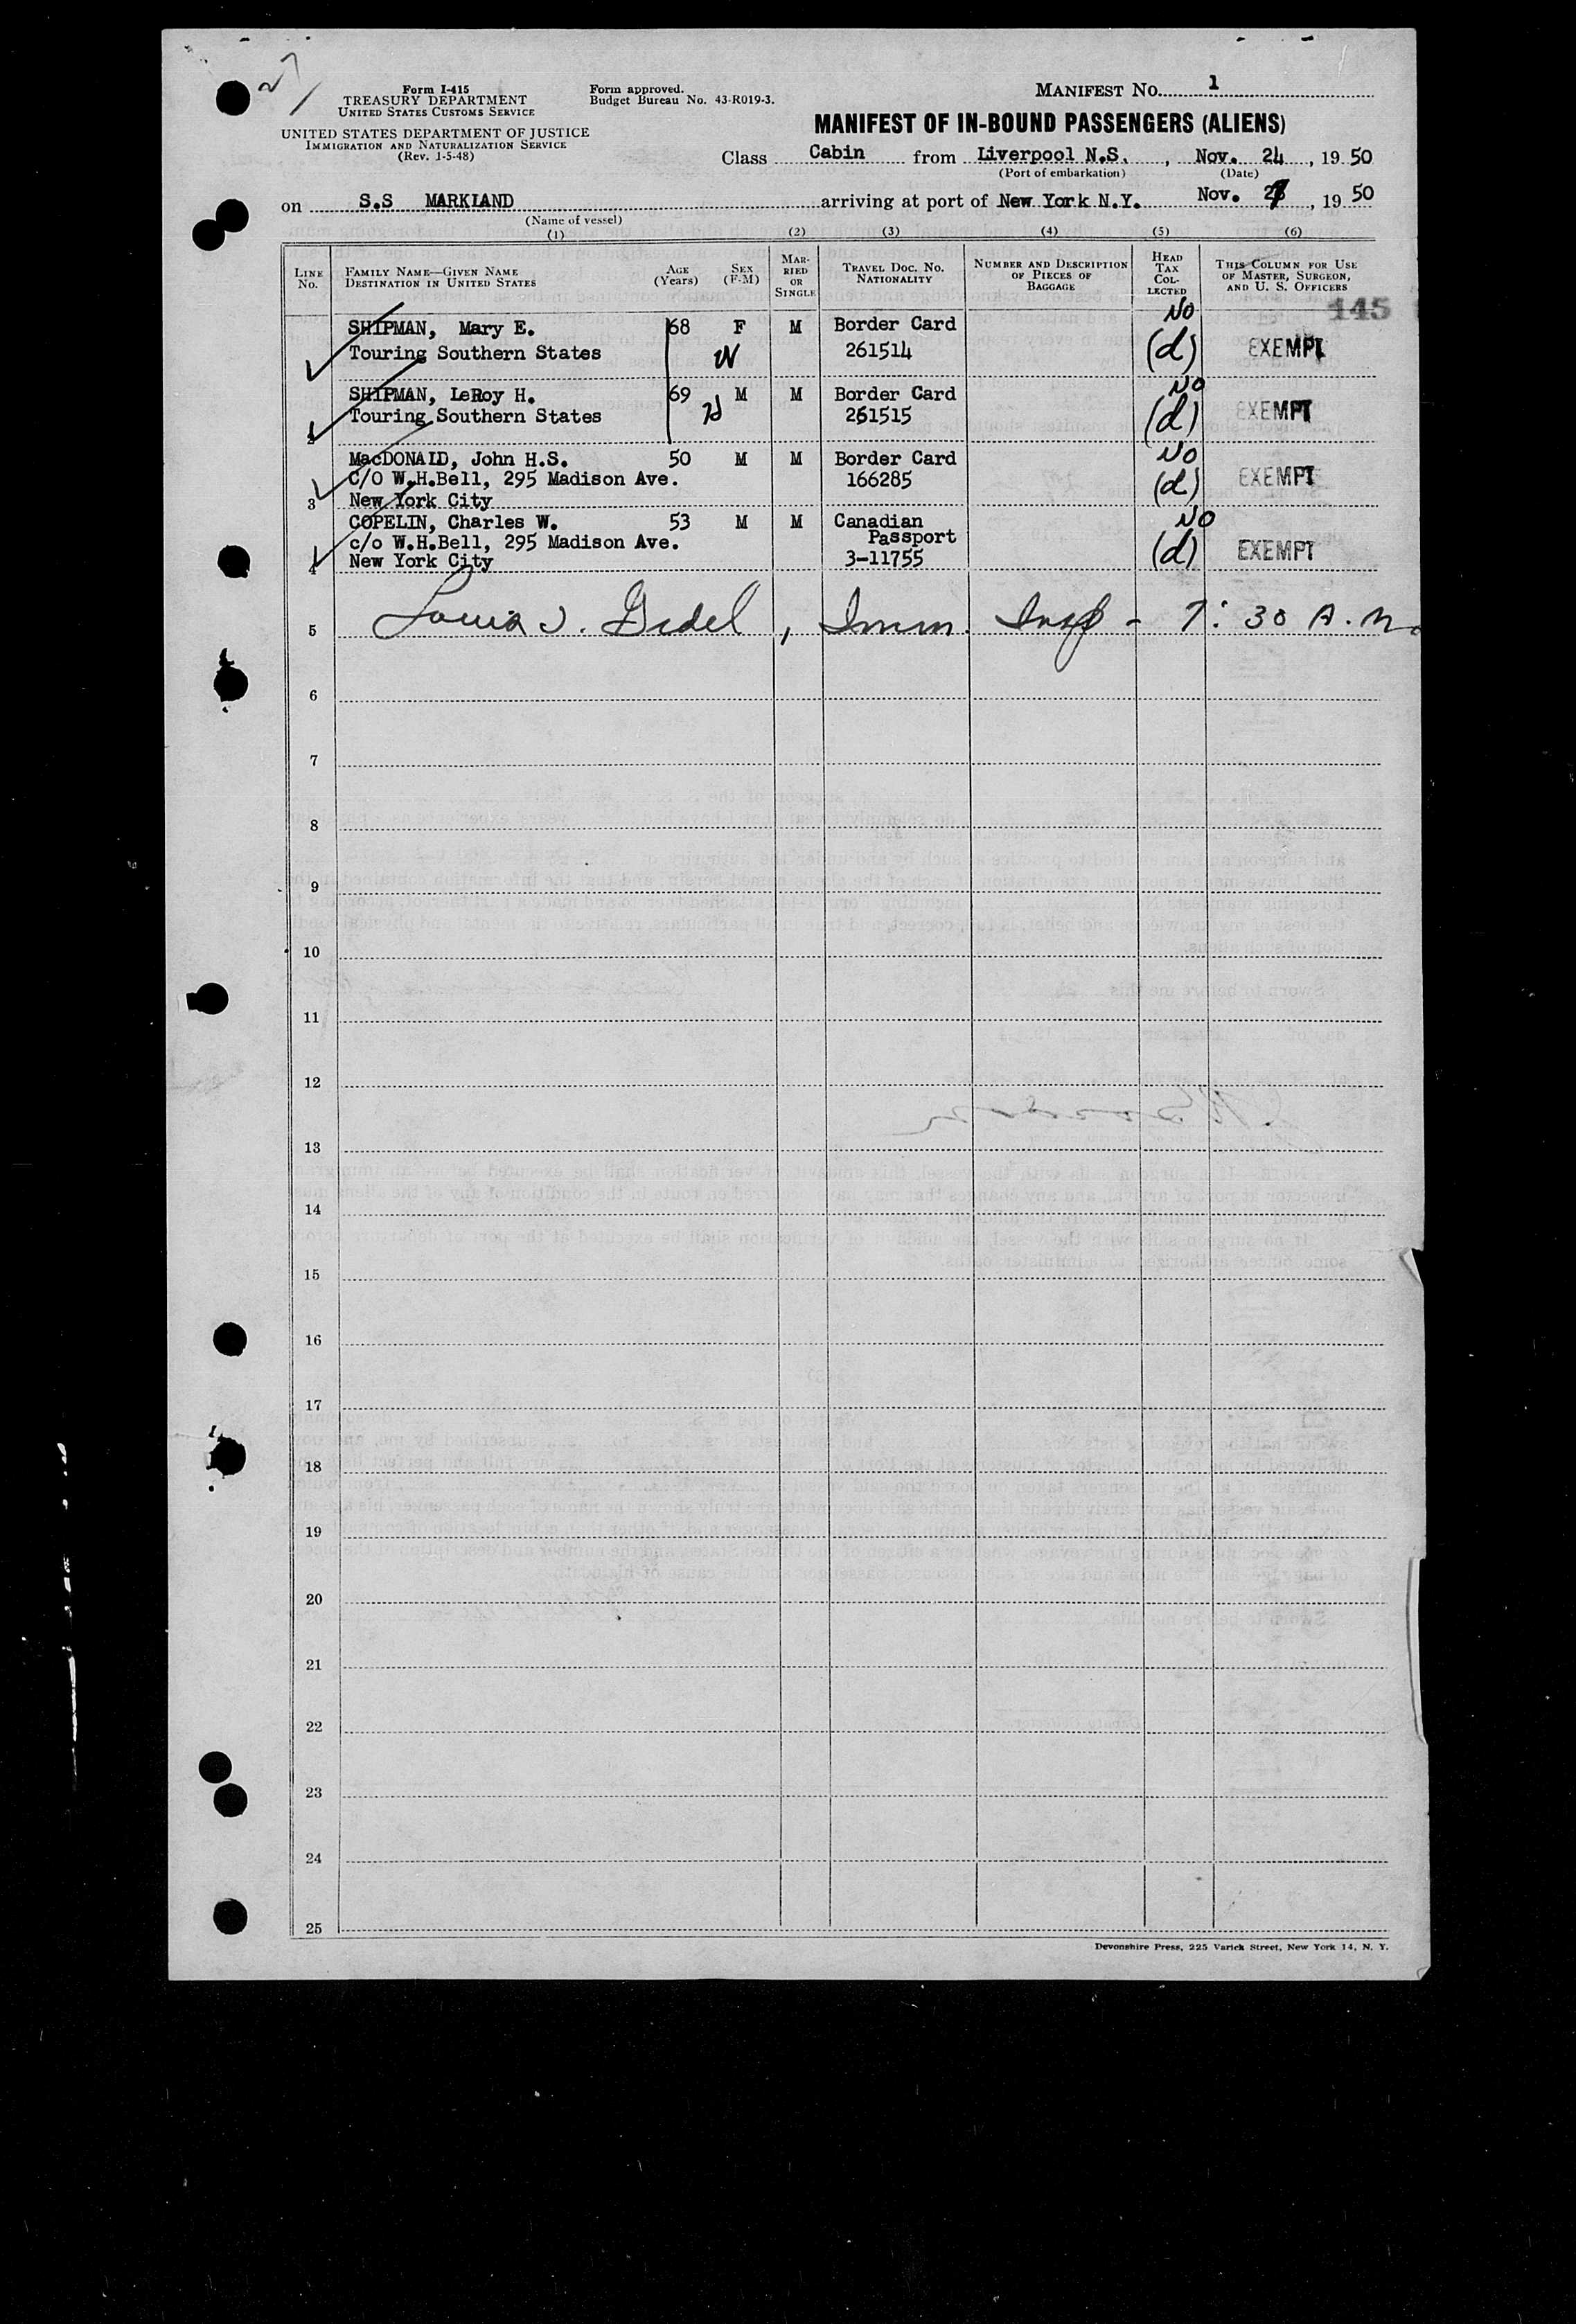 Form I-415
TREASURY DEPARTMENT
UNITED STATES CUSTOMS SERVICE
UNITED STATES DEPARTMENT OF JUSTICE
IMMIGRATION AND NATURALIZATION SERVICE
(Rev. 1-5-48)
Form approved.
Budget Bureau No. 43-R019-3.
MANIFEST No. 1
MANIFEST OF IN-BOUND PASSENGERS (ALIENS)
Class Cabin from Liverpool N.S. , Nov. 24 , 19 50
(Port of embarkation) (Date)
on S.S MARKLAND arriving at port of New York N.Y. Nov. 27 , 19 50
(Name of vessel)
(1) (2) (3) (4) (5) (6)
LINE No. FAMILY NAME—GIVEN NAME DESTINATION IN UNITED STATES AGE (Years) SEX (F-M) MARRIED OR SINGLE TRAVEL DOC. NO. NATIONALITY NUMBER AND DESCRIPTION OF PIECES OF BAGGAGE HEAD TAX COLLECTED THIS COLUMN FOR USE OF MASTER, SURGEON, AND U. S. OFFICERS
145
SHIPMAN, Mary E. 68 F M Border Card No
Touring Southern States W 261514 (d) EXEMPT
SHIPMAN, LeRoy H. 69 M M Border Card No
2 Touring Southern States H 261515 (d) EXEMPT
MacDONALD, John H.S. 50 M M Border Card No
C/O W.H.Bell, 295 Madison Ave. 166285 (d) EXEMPT
3 New York City
COPELIN, Charles W. 53 M M Canadian No
c/o W.H.Bell, 295 Madison Ave. Passport (d) EXEMPT
4 New York City 3-11755
5 Louis J. Gidel, Imm. Insp - 7:30 A.M.
6
7
8
9
10
11
12
13
14
15
16
17
18
19
20
21
22
23
24
25
Devonshire Press, 225 Varick Street, New York 14, N. Y.